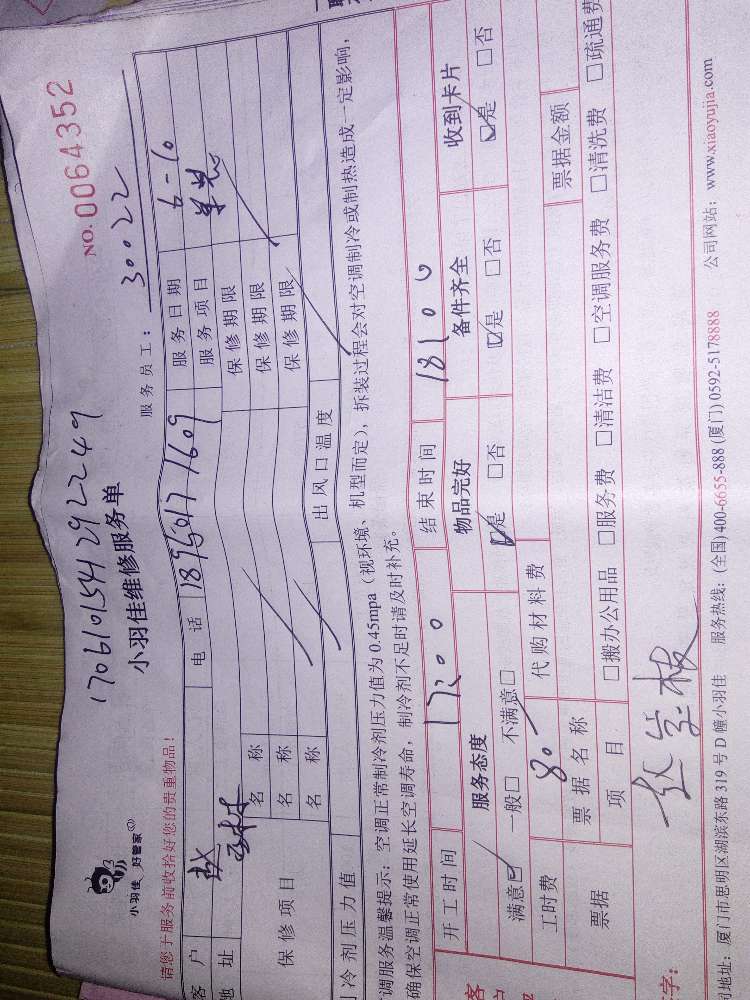 小羽佳 好管家
NO.0064352
170610154129 2249
小羽佳维修服务单
服务员工： 30022
请您于服务前收拾好您的贵重物品！
客 户 赵 电 话 18950177609 服务日期 6-10
地 址 服务项目
保修项目
名 称 保修期限
名 称 保修期限
名 称 保修期限
冷剂压力值 出风口温度
调服务温馨提示：空调正常制冷剂压力值为 0.45mpa（视环境、机型而定），拆装过程会对空调制冷或制热造成一定影响，
确保空调正常使用延长空调寿命，制冷剂不足时请及时补充。
开工时间 17:00 结束时间 18:00
服务态度 物品完好 备件齐全 收到卡片
满意☑ 一般□ 不满意□ ☑是 □否 ☑是 □否 ☑是 □否
工时费 80 代购材料费
票据 票据名称 票据金额
项 目 □搬办公用品 □服务费 □清洁费 □空调服务费 □清洗费 □疏通费
字：
司地址：厦门市思明区湖滨东路 319 号 D 幢小羽佳 服务热线：(全国)400-6655-888 (厦门)0592-5178888 公司网站：www.xiaoyujia.com